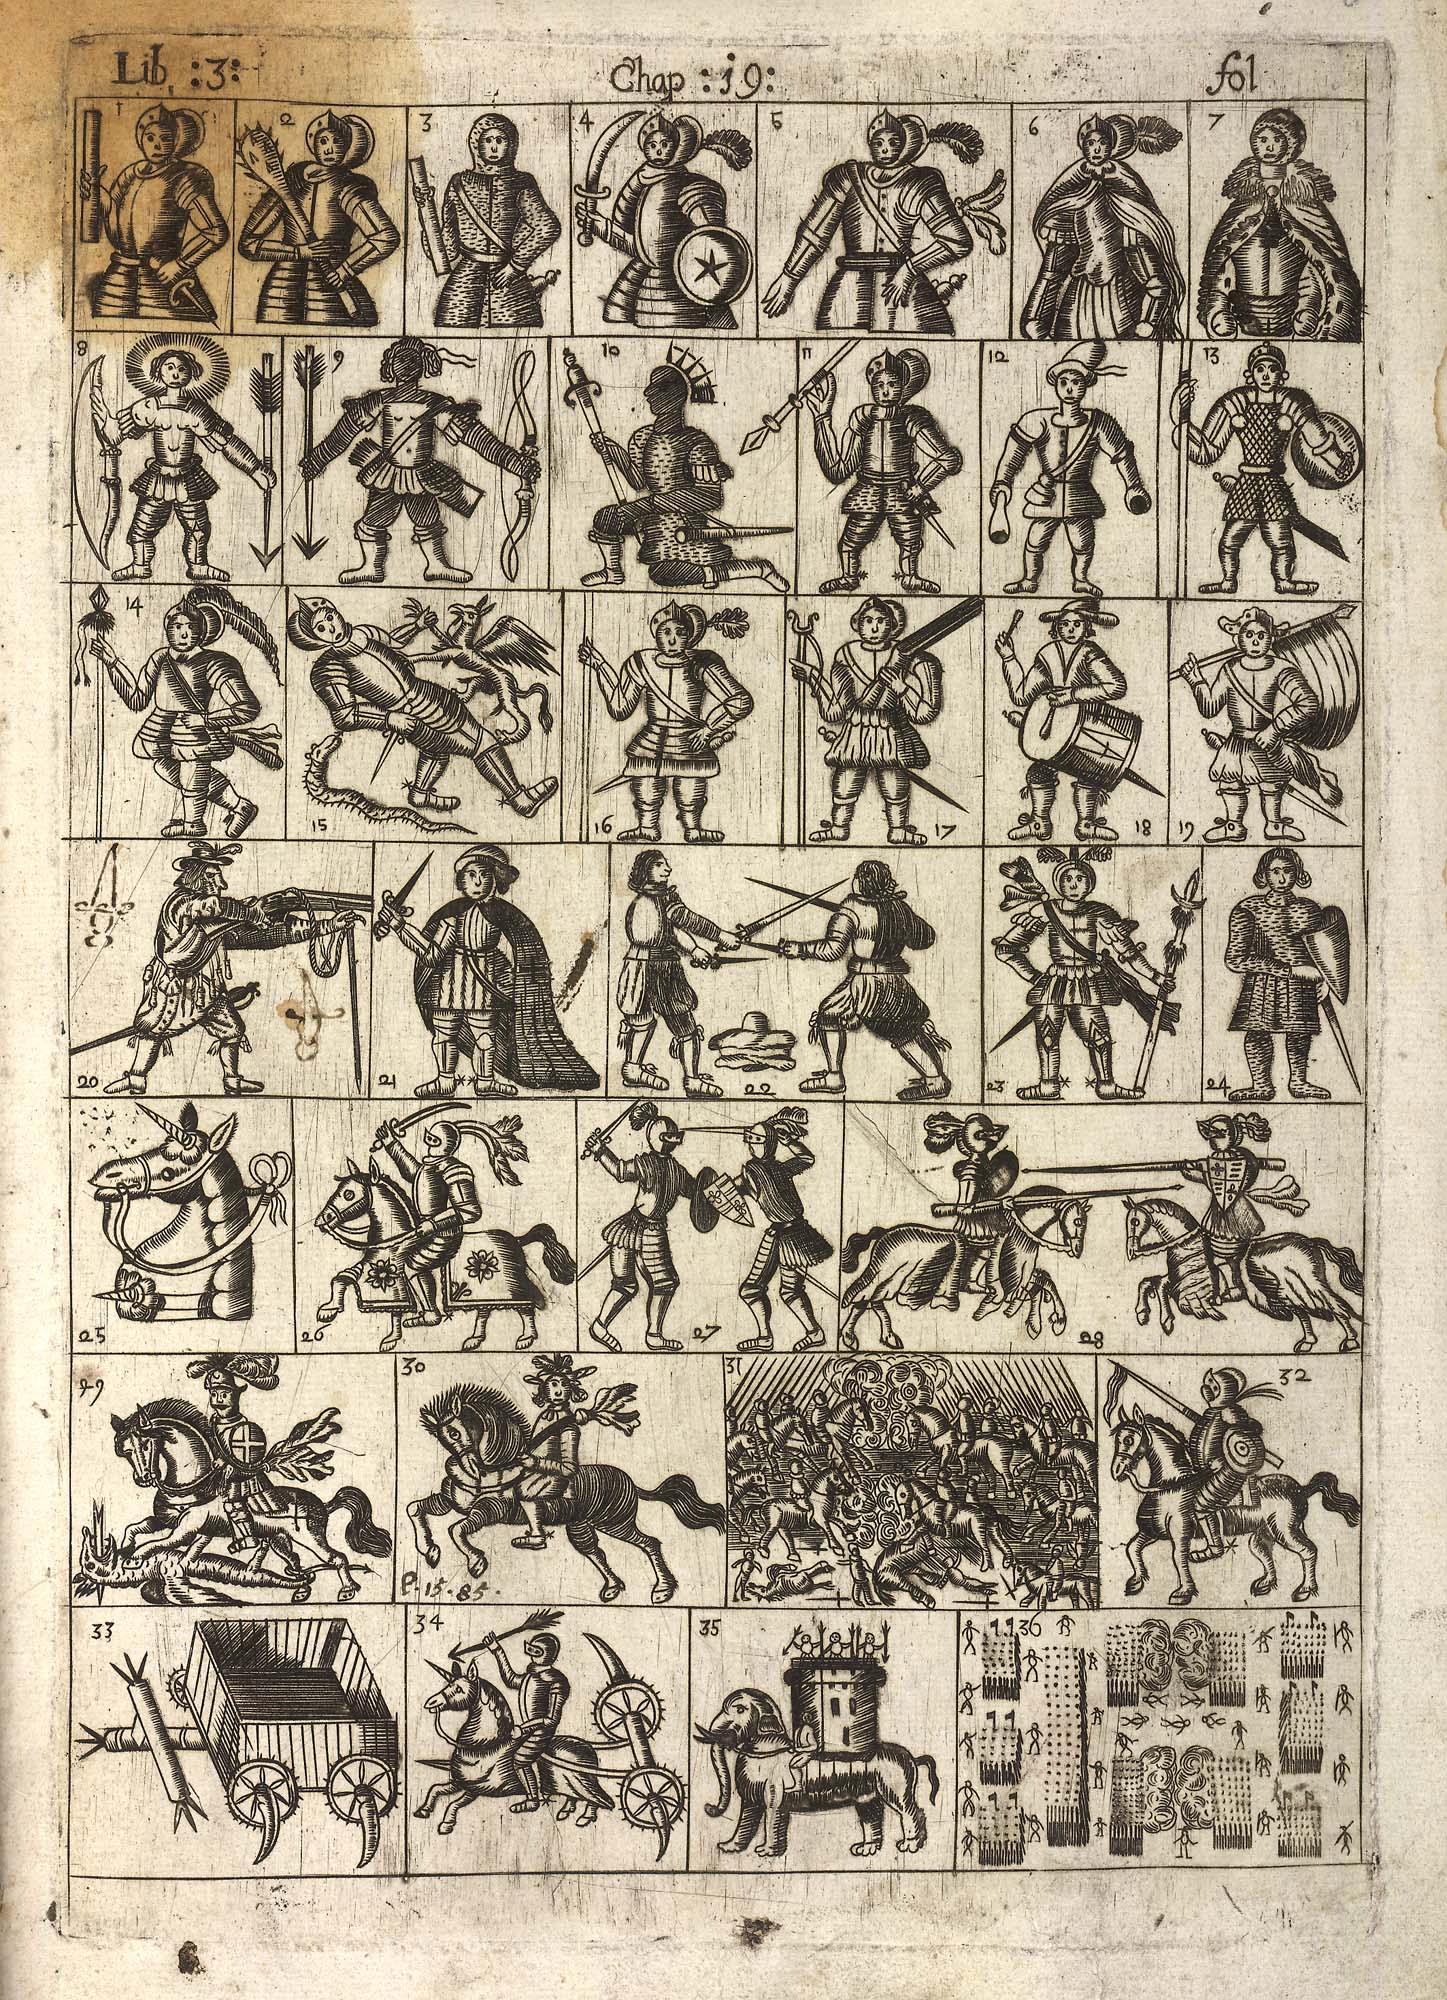 Lib :3: Chap :19: fol
1 2 3 4 5 6 7
8 9 10 11 12 13
14 15 16 17 18 19
20 21 22 23 24
25 26 27 28
29 30 31 32
P.15.85.
33 34 35 36